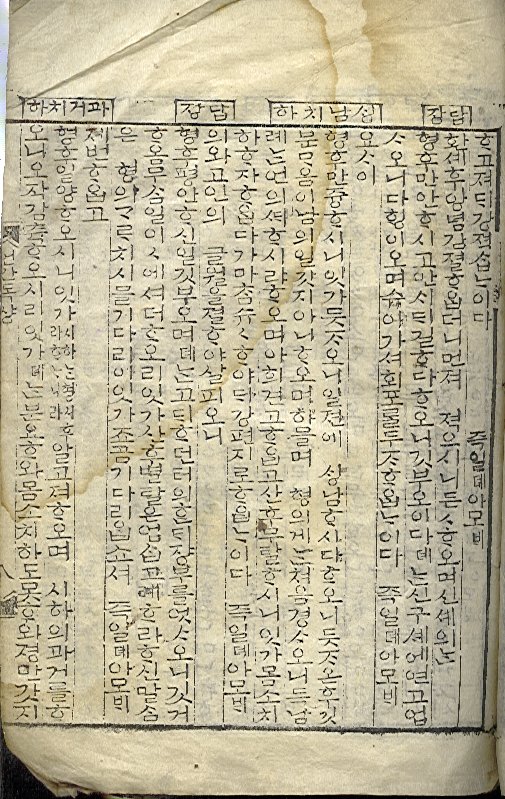 ᄒᆞ고져 ᄃᆡ강 젹ᄉᆞᆸᄂᆞ이다 즉일 뎨 아모 ᄇᆡ
답장
환셰후 앙념 간졀ᄒᆞ옵더니 먼져 젹으시니 든ᄉᆞᄒᆞ오며 신셰의ᄂᆞᆫ
형후 만안ᄒᆞ시고 안시도 길ᄒᆞ다 ᄒᆞ오니 깃부오이다 뎨ᄂᆞᆫ 신구셰에 연고 업
ᄉᆞ오니 다ᄒᆡᆼ이오며 슈이 가셔 회포를 ᄒᆞ옵ᄂᆞ이다 즉일 뎨 아모 ᄇᆡ
ᄉᆡᆼ남치하
요ᄉᆞ이
형후 만즁ᄒᆞ시니잇가 듯ᄌᆞ오니 일젼에 ᄉᆡᆼ남ᄒᆞ시다 ᄒᆞ오니 듯ᄌᆞ온 후 깃
부옴이 남의 일 갓지 아니ᄒᆞ오며 ᄒᆞᆼ믈며 형의게ᄂᆞᆫ 쳐음 경ᄉᆞ오니 득남
례ᄂᆞᆫ 언의 셔 ᄒᆞ시랴 ᄒᆞ오며 아희 ᄒᆞ옵고 산후 무탈ᄒᆞ시니잇가 몸소 치
하ᄒᆞᄌᆞ ᄒᆞ옵다가 마ᄎᆞᆷ ᄒᆞ야 ᄃᆡ강 편지로 ᄒᆞ옵ᄂᆞ이다 즉일 뎨 아모 ᄇᆡ
답장
의외 고인의 글월을 졀ᄒᆞ야 살피오니
형후 평안ᄒᆞ신 일 깃부오며 뎨ᄂᆞᆫ 고ᄃᆡᄒᆞ던 터의 ᄒᆞᆫ 쟝부를 엇ᄉᆞ오니 깃거
ᄒᆞ옴 무ᄉᆞᆷ 일이 이에셔 더ᄒᆞ오리잇가 산후 별탈은 업ᄉᆞᆸ고 례ᄒᆞ라 ᄒᆞ신 말ᄉᆞᆷ
은 형의 ᄀᆞᄅᆞ치시믈 기다리잇가 죠곰 기다리ᄋᆞᆸ쇼셔 즉일 뎨 아모 ᄇᆡ
과거치하
졔번ᄒᆞ옵고
형후 일양ᄒᆞ오시니잇가 시하ᄂᆞᆫ 형시후라 ᄒᆞᄂᆞ니라 알고져 ᄒᆞ오며 시하의 과거를 ᄒᆞ
오니 오작 감츅ᄒᆞ오시리잇가 뎨ᄂᆞᆫ 분요ᄒᆞ와 몸소 치하도 못ᄒᆞ와 졍만 갓지
언간독 상 八